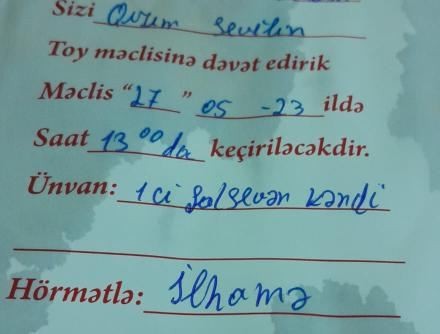 Sizi Qızım Sevilin
Toy məclisinə dəvət edirik
Məclis “27” 05 -23 ildə
Saat 13⁰⁰ da keçiriləcəkdir.
Ünvan: 1 ci Şıxlı kəndi
Hörmətlə: İlhamə